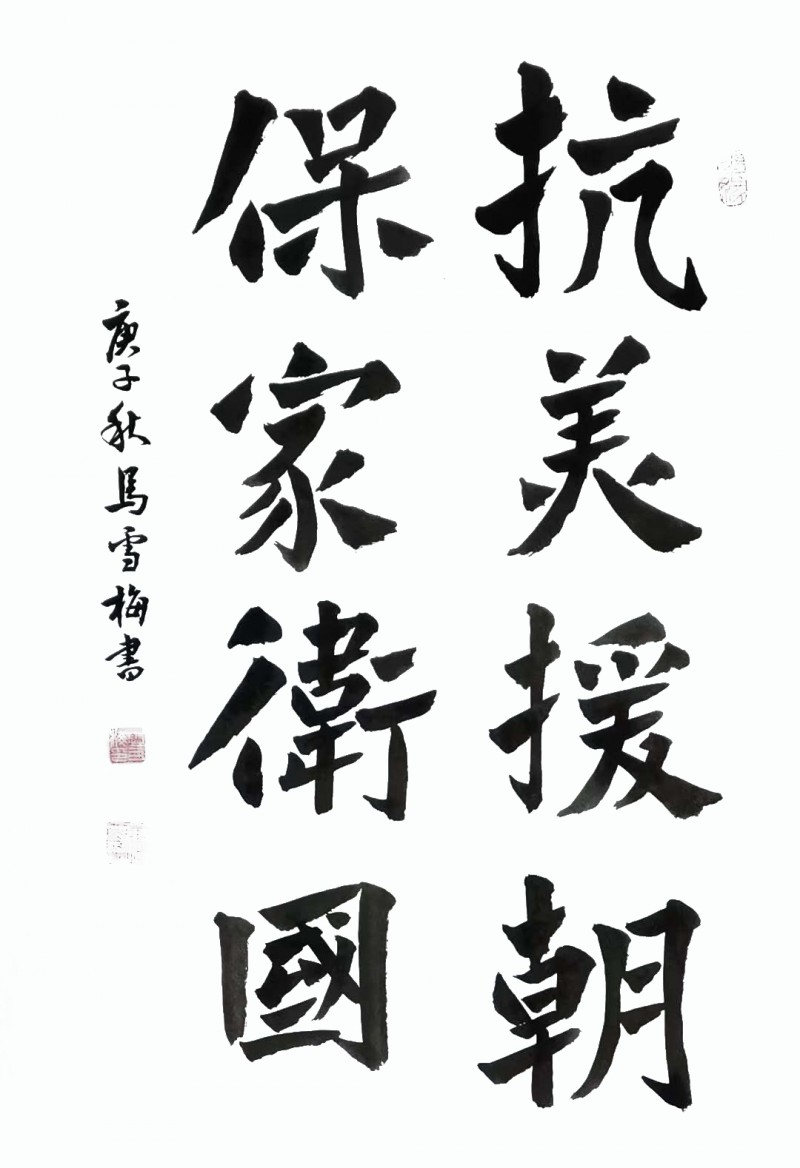 抗美援朝
保家衛國
庚子秋馬雪梅书